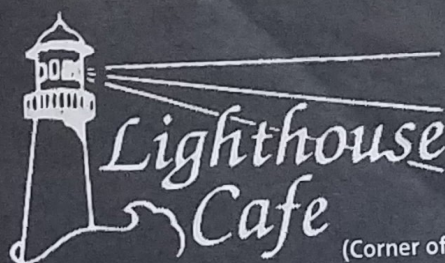 Lighthouse
Cafe
(Corner of